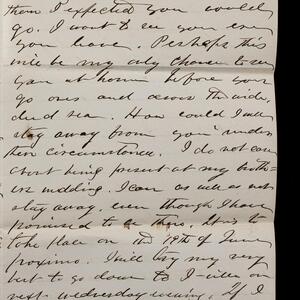 than I expected you would
go. I want to see you ere
you leave. Perhaps this
will be my only chance to see
you at home before you
go over and across the wide,
dead sea. How could I well
stay away from you under
these circumstances. I do not care
about being present at my broth-
ers wedding. I can as well as not
stay away, even though I have
promised to be there. It is to
take place on the 19th of June
proximo. I will try my very
best to go down to I-ville on
next wednesday evening. If I